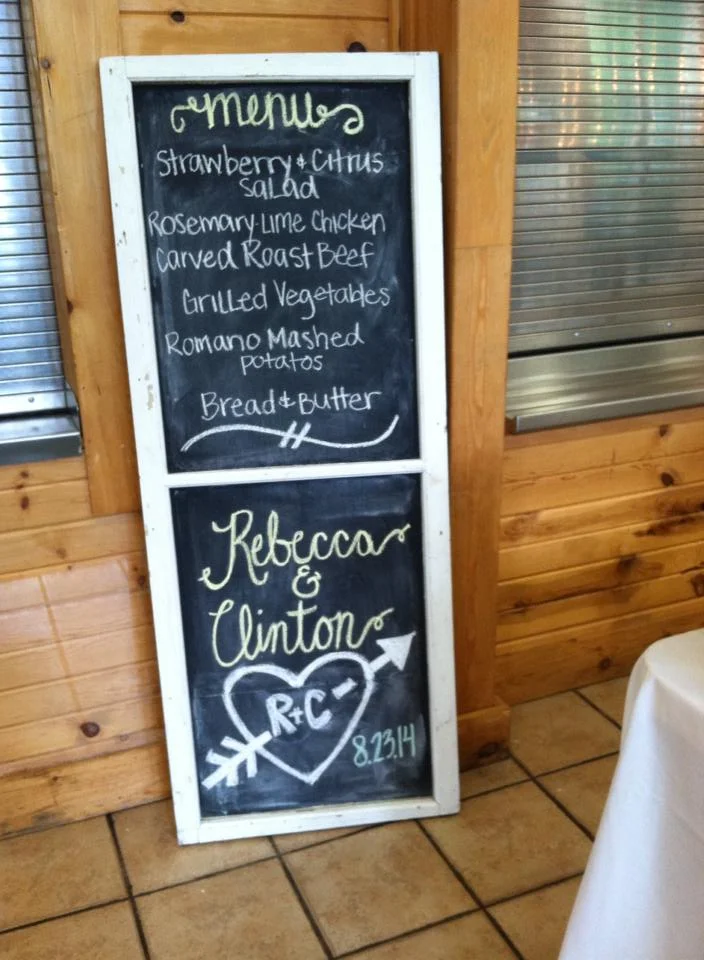 menu
Strawberry & Citrus
Salad
Rosemary-Lime Chicken
Carved Roast Beef
Grilled Vegetables
Romano Mashed
Potatos
Bread & Butter
Rebecca
&
Clinton
R+C
8.23.14